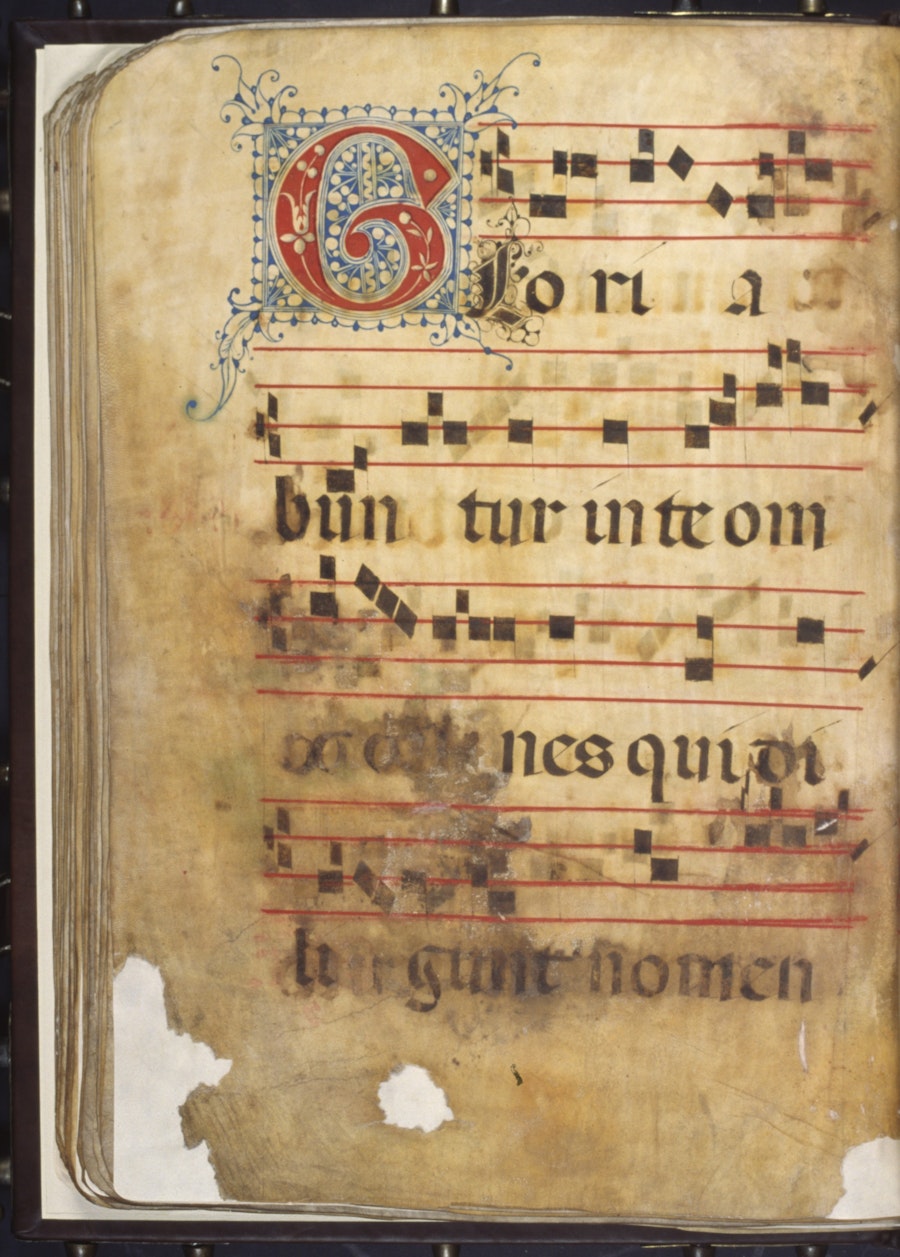 Glo ri a
bun tur in te om
nes qui di
li gunt nomen